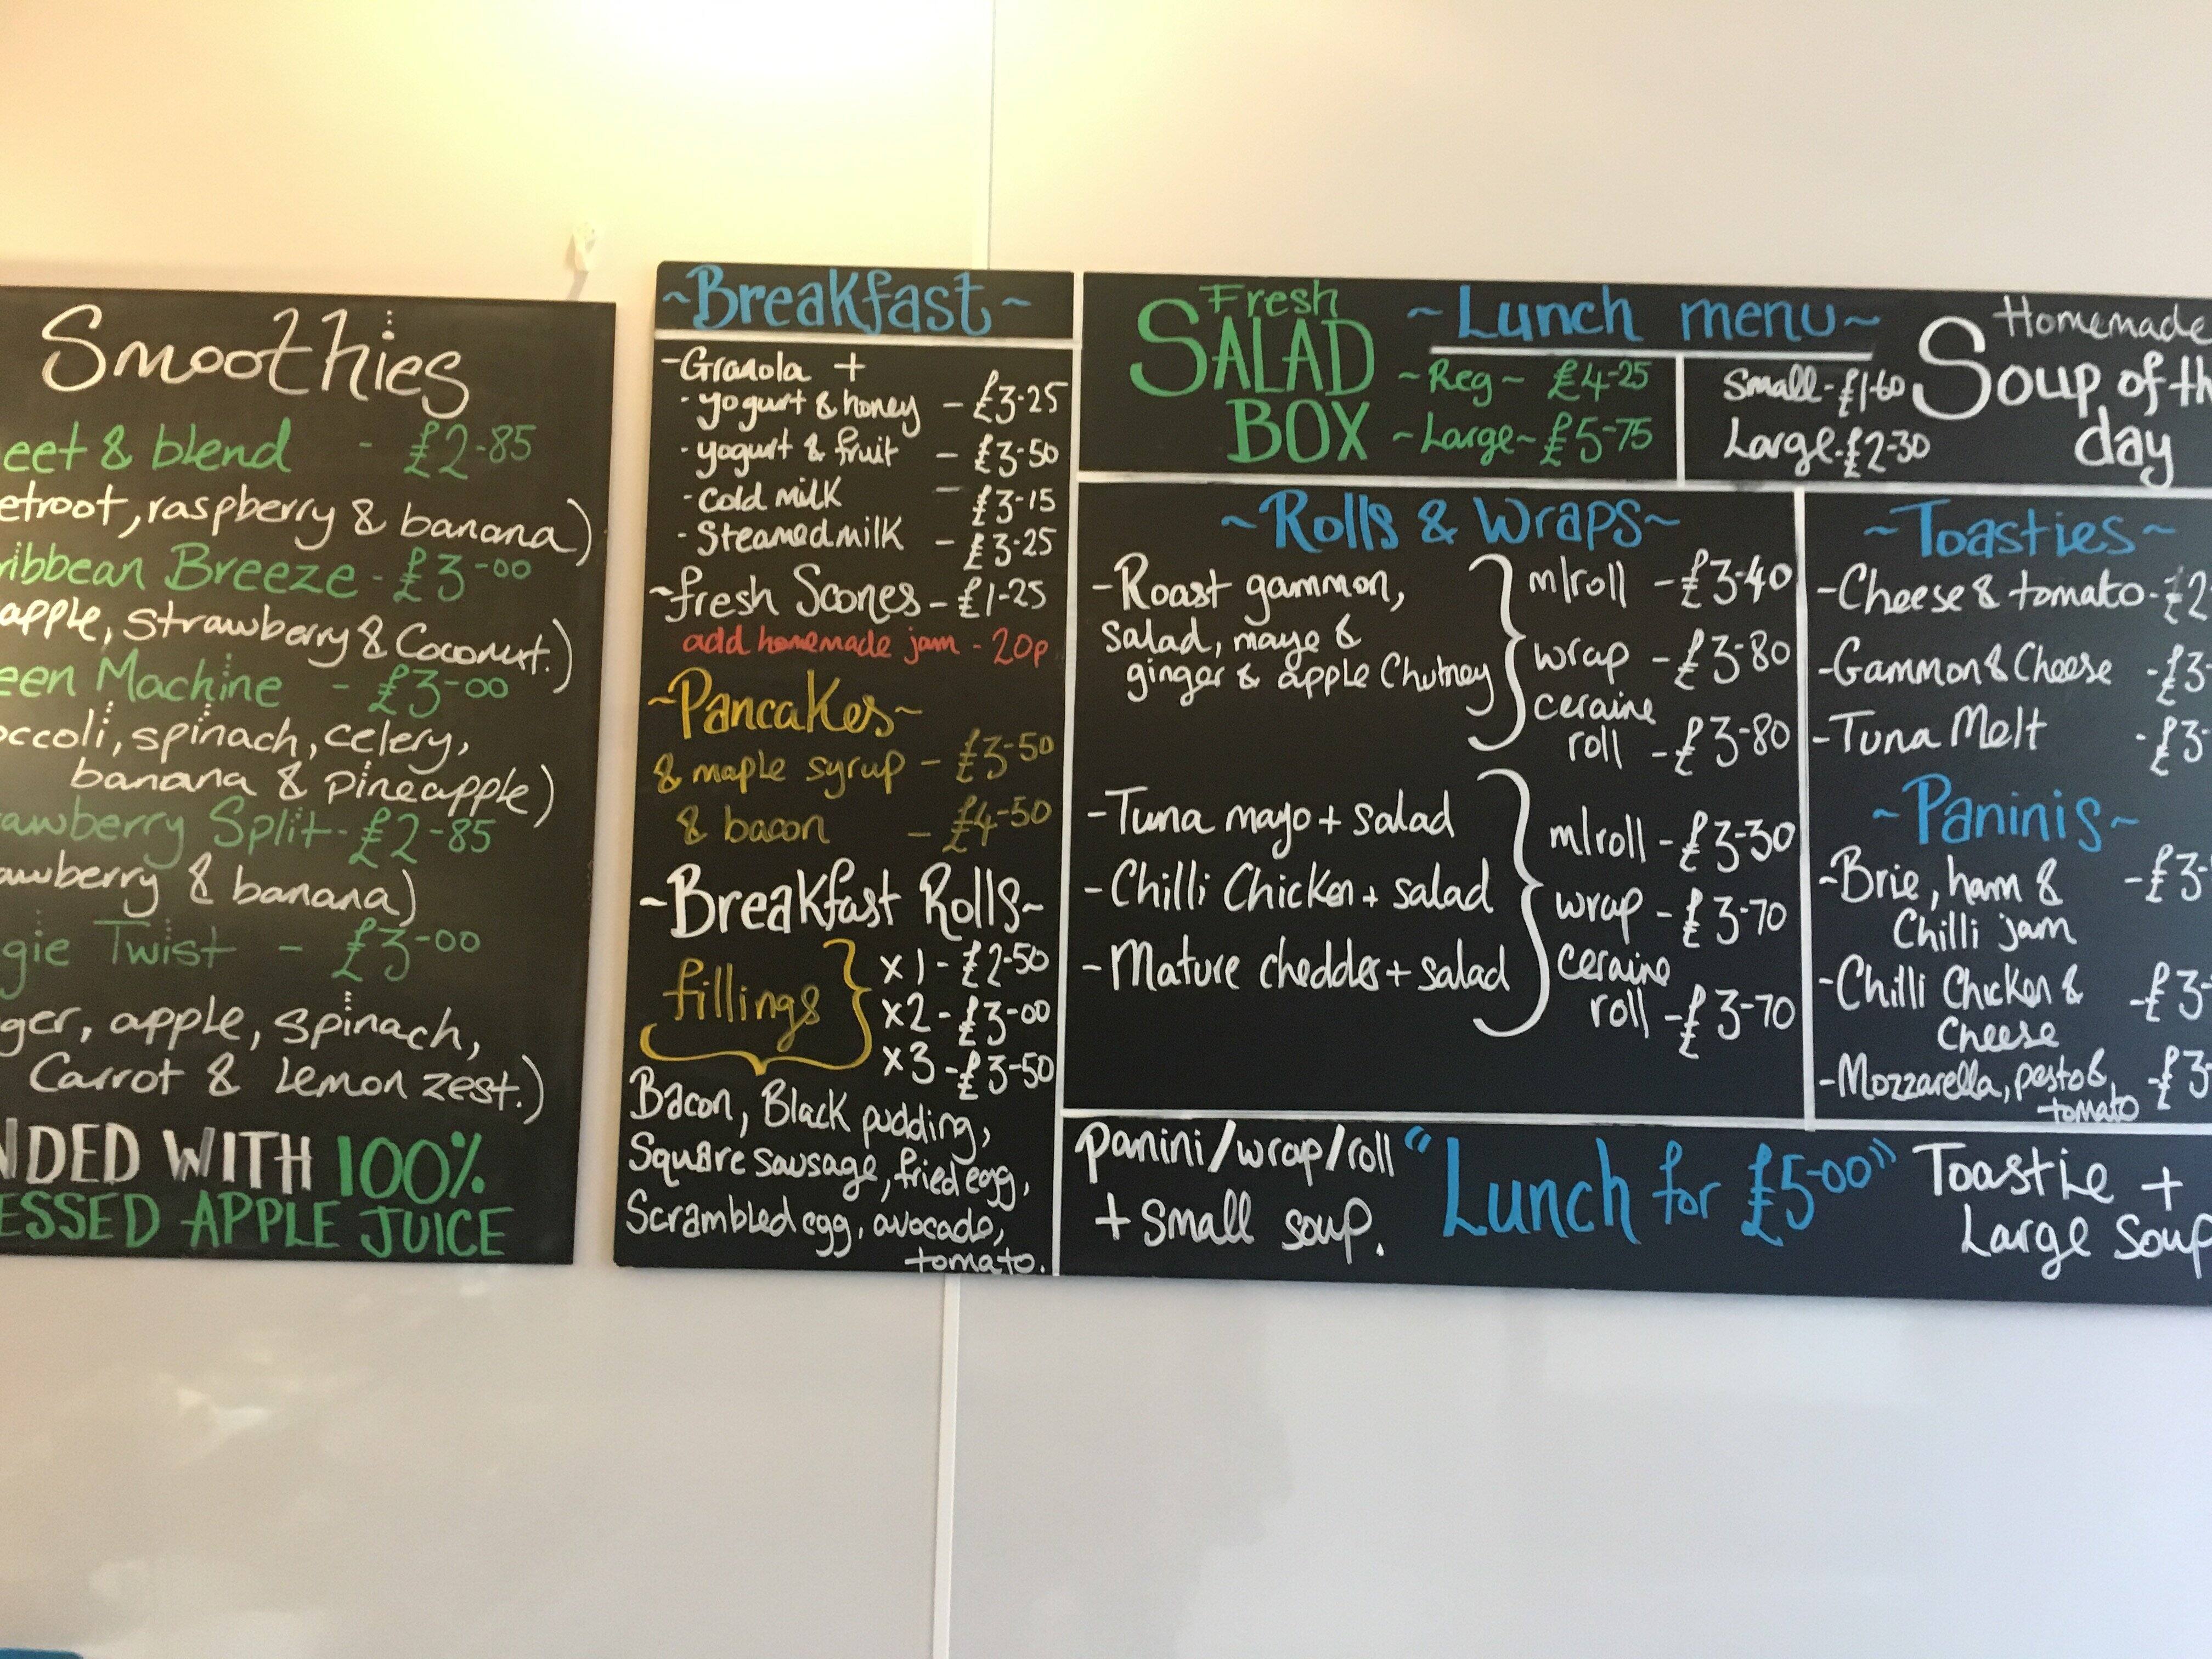 Smoothies
eet & blend - £2-85
etroot, raspberry & banana)
ribbean Breeze - £3-00
apple, Strawberry & Coconut.)
een Machine - £3-00
occoli, spinach, celery,
banana & pineapple)
awberry Split - £2-85
awberry & banana)
gie Twist - £3-00
ger, apple, spinach,
Carrot & Lemon zest.)
NDED WITH 100%
ESSED APPLE JUICE
~Breakfast~
-Granola +
- yogurt & honey - £3·25
- yogurt & fruit - £3-50
- cold milk - £3-15
- Steamed milk - £3-25
~fresh Scones - £1-25
add homemade jam - 20p
~Pancakes~
& maple syrup - £3-50
& bacon - £4-50
~Breakfast Rolls~
fillings
x1 - £2-50
x2 - £3-00
x3 - £3-50
Bacon, Black pudding,
Square sausage, fried egg,
Scrambled egg, avocado,
tomato.
Fresh
SALAD
BOX
~Lunch menu~
~Reg~ £4-25
~Large~ £5-75
Small - £1-60
Large - £2-30
Homemade
Soup of th
day
~Rolls & Wraps~
-Roast gammon,
salad, maye &
ginger & apple Chutney
m/roll - £3-40
wrap - £3-80
ceraine
roll - £3-80
-Tuna mayo + salad
-Chilli Chicken + salad
-Mature chedder + salad
m/roll - £3-30
wrap - £3-70
ceraine
roll - £3-70
~Toasties~
-Cheese & tomato - £2
-Gammon & Cheese - £3-
-Tuna Melt - £3-
~Paninis~
-Brie, ham & - £3-
Chilli jam
-Chilli Chicken & - £3-
Cheese
-Mozzarella, pesto & - £3-
tomato
panini/wrap/roll
+ small soup.
"Lunch for £5-00"
Toastie +
Large Soup